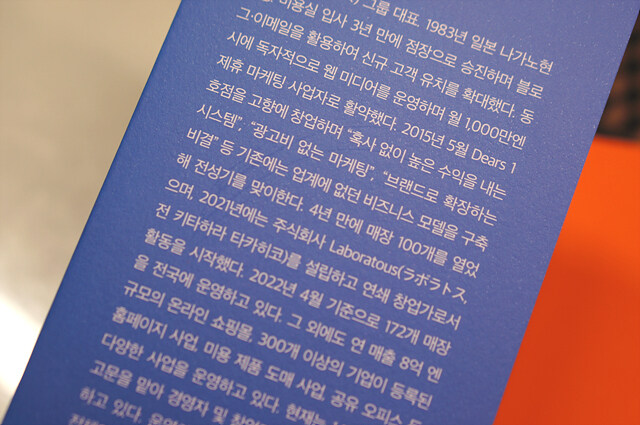 그룹 대표. 1983년 일본 나가노현
미용실 입사 3년 만에 점장으로 승진하며 블로
그·이메일을 활용하여 신규 고객 유치를 확대했다. 동
시에 독자적으로 웹 미디어를 운영하며 월 1,000만엔
제휴 마케팅 사업자로 활약했다. 2015년 5월 Dears 1
호점을 고향에 창업하며 “혹사 없이 높은 수익을 내는
시스템”, “광고비 없는 마케팅”, “브랜드로 확장하는
비결” 등 기존에는 업계에 없던 비즈니스 모델을 구축
해 전성기를 맞이한다. 4년 만에 매장 100개를 열었
으며, 2021년에는 주식회사 Laboratous(ラボラトス,
전 키타하라 타카히코)를 설립하고 연쇄 창업가로서
활동을 시작했다. 2022년 4월 기준으로 172개 매장
을 전국에 운영하고 있다. 그 외에도 연 매출 8억 엔
규모의 온라인 쇼핑몰, 300개 이상의 기업이 등록된
홈페이지 사업, 미용 제품 도매 사업, 공유 오피스 등
다양한 사업을 운영하고 있다. 현재는
고문을 맡아 경영자 및
하고 있다.